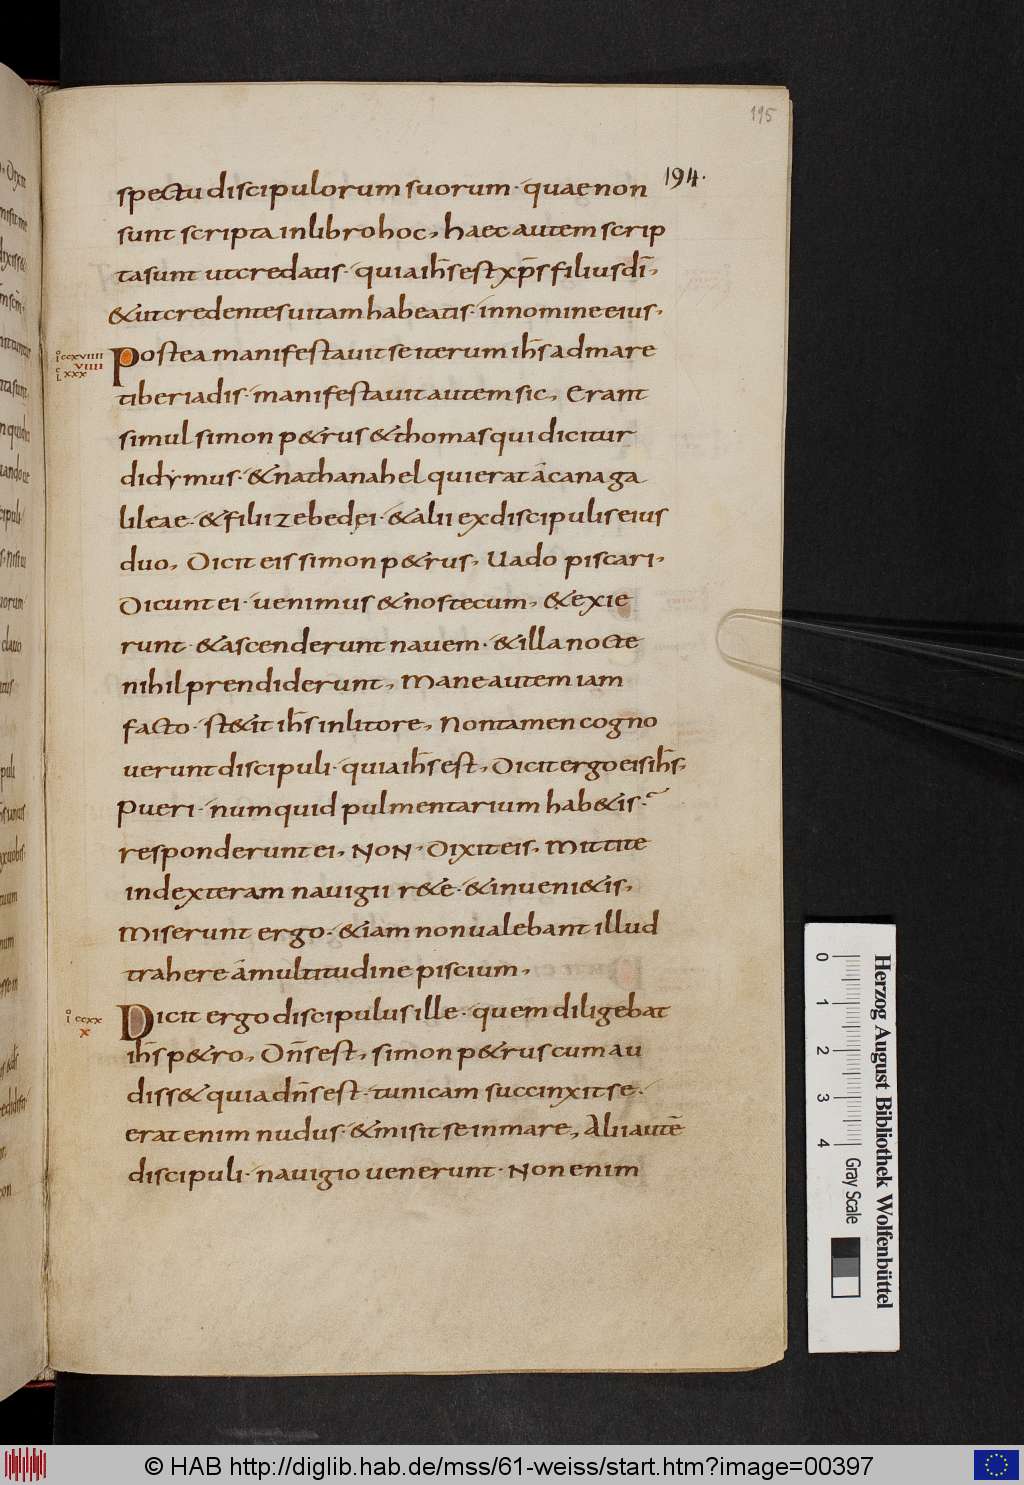 195
194.
spectu discipulorum suorum· quae non
sunt scripta in libro hoc, haec autem scrip
ta sunt ut credatis· quia ihs̄ est xp̄s filius dī,
& ut credentes uitam habeatis· in nomine eius,
ccxviiii
viiii
xxx
Postea manifestauit se iterum ihs̄ ad mare
tiberiadis· manifestauit autem sic, Erant
simul simon p&rus & thomas qui dicitur
didymus· & nathanahel qui erat a cana ga
lileae· & filii zebedei· & alii ex discipulis eius
duo, Dicit eis simon p&rus, Uado piscari,
Dicunt ei· uenimus & nos tecum, & exie
runt· & ascenderunt nauem· & illa nocte
nihil prendiderunt, Mane autem iam
facto· st&it ihs̄ in litore, Non tamen cogno
uerunt discipuli· quia ihs̄ est, Dicit ergo eis ihs̄,
Pueri· numquid pulmentarium hab&is·
responderunt ei, NON· Dixit eis, Mittite
in dexteram nauigii r&e· & inueni&is,
Miserunt ergo· & iam non ualebant illud
trahere a multitudine piscium,
ccxx
x
Dicit ergo discipulus ille· quem diligebat
ihs̄ p&ro, Dn̄s est, simon p&rus cum au
diss& quia dn̄s est· tunicam succinxit se·
erat enim nudus· & misit se in mare, Alii autē
discipuli· nauigio uenerunt· Non enim
Herzog August Bibliothek Wolfenbüttel
0 1 2 3 4 Gray Scale
© HAB http://diglib.hab.de/mss/61-weiss/start.htm?image=00397